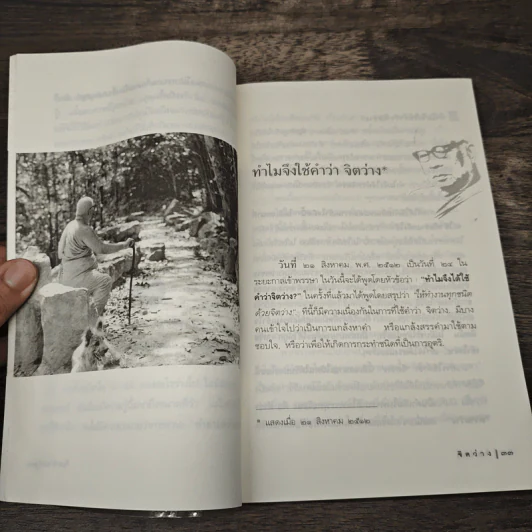 ทำไมจึงใช้คำว่า จิตว่าง*
วันที่ ๒๑ สิงหาคม พ.ศ. ๒๕๑๒ เป็นวันที่ ๒๔ ใน
ระยะกาลเข้าพรรษา ในวันนี้จะได้พูดโดยหัวข้อว่า "ทำไมจึงได้ใช้
คำว่าจิตว่าง?" ในครั้งที่แล้วมาได้พูดโดยสรุปว่า "ให้ทำงานทุกชนิด
ด้วยจิตว่าง" ทีนี้ก็มีความเนื่องกันในการที่ใช้คำว่า จิตว่าง มีบาง
คนเข้าใจไปว่าเป็นการแกล้งหาคำ หรือแกล้งสรรคำมาใช้ตาม
ชอบใจ หรือว่าเพื่อให้เกิดการกระทำชนิดที่เป็นการอุตริ
* แสดงเมื่อ ๒๑ สิงหาคม ๒๕๑๒
จิตว่าง | ๓๓